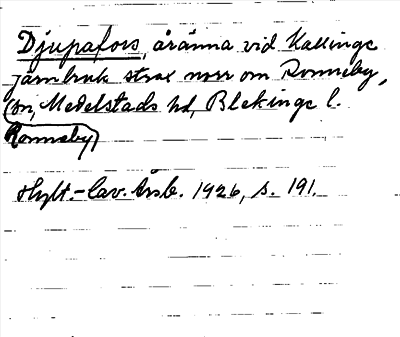 Djupafors, åränna vid Kallinge
järnbruk strax norr om Ronneby,
sn, Medelstads hd, Blekinge l.
Ronneby
Hylt.-Cav. Årsb. 1926, s. 191.